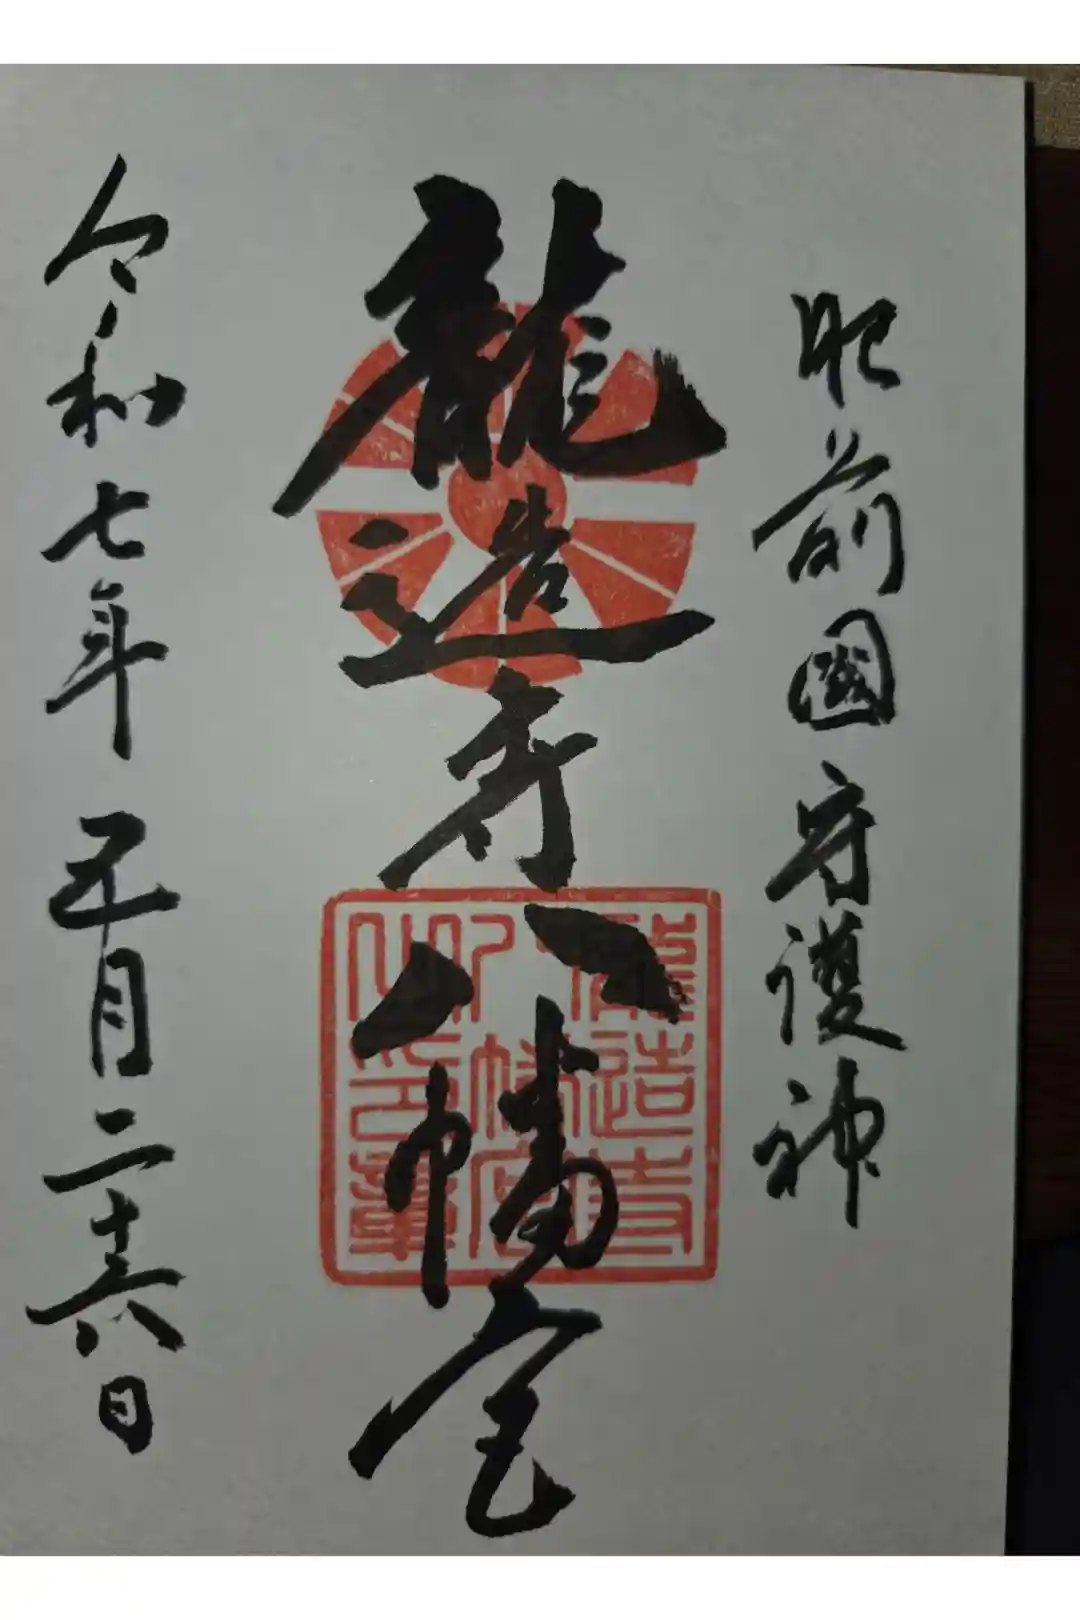 肥前國守護神
龍造寺八幡宮
龍造寺
八幡宮
之印章
令和七年五月二十六日